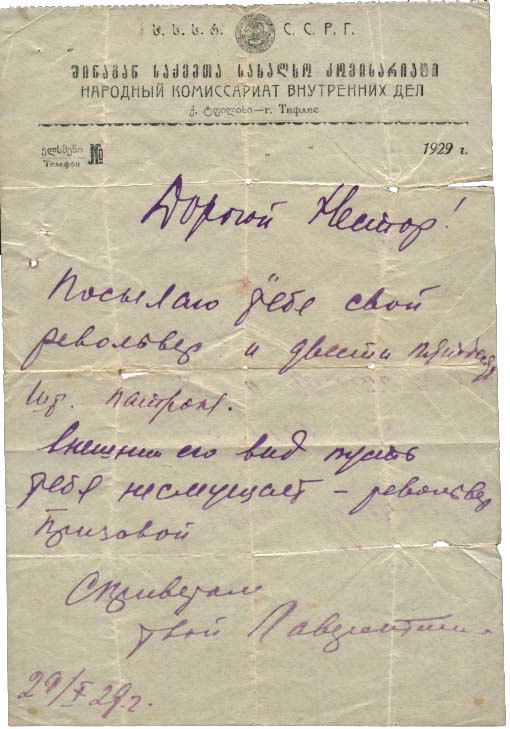 ს. ს. ს. რ. С. С. Р. Г.
შინაგან საქმეთა სახალხო კომისარიატი
НАРОДНЫЙ КОМИССАРИАТ ВНУТРЕННИХ ДЕЛ
ქ. ტფილისი—г. Тифлис
ტელეფონი
Телефон №
" " 1929 г.
Дорогой Нестор!
Посылаю тебе свой
револьвер и двести пятьдесят
шт. патрон.
внешний его вид пусть
тебя несмущает – револьвер
призовой
С приветом
твой Лаврентий.
29/X 29 г.